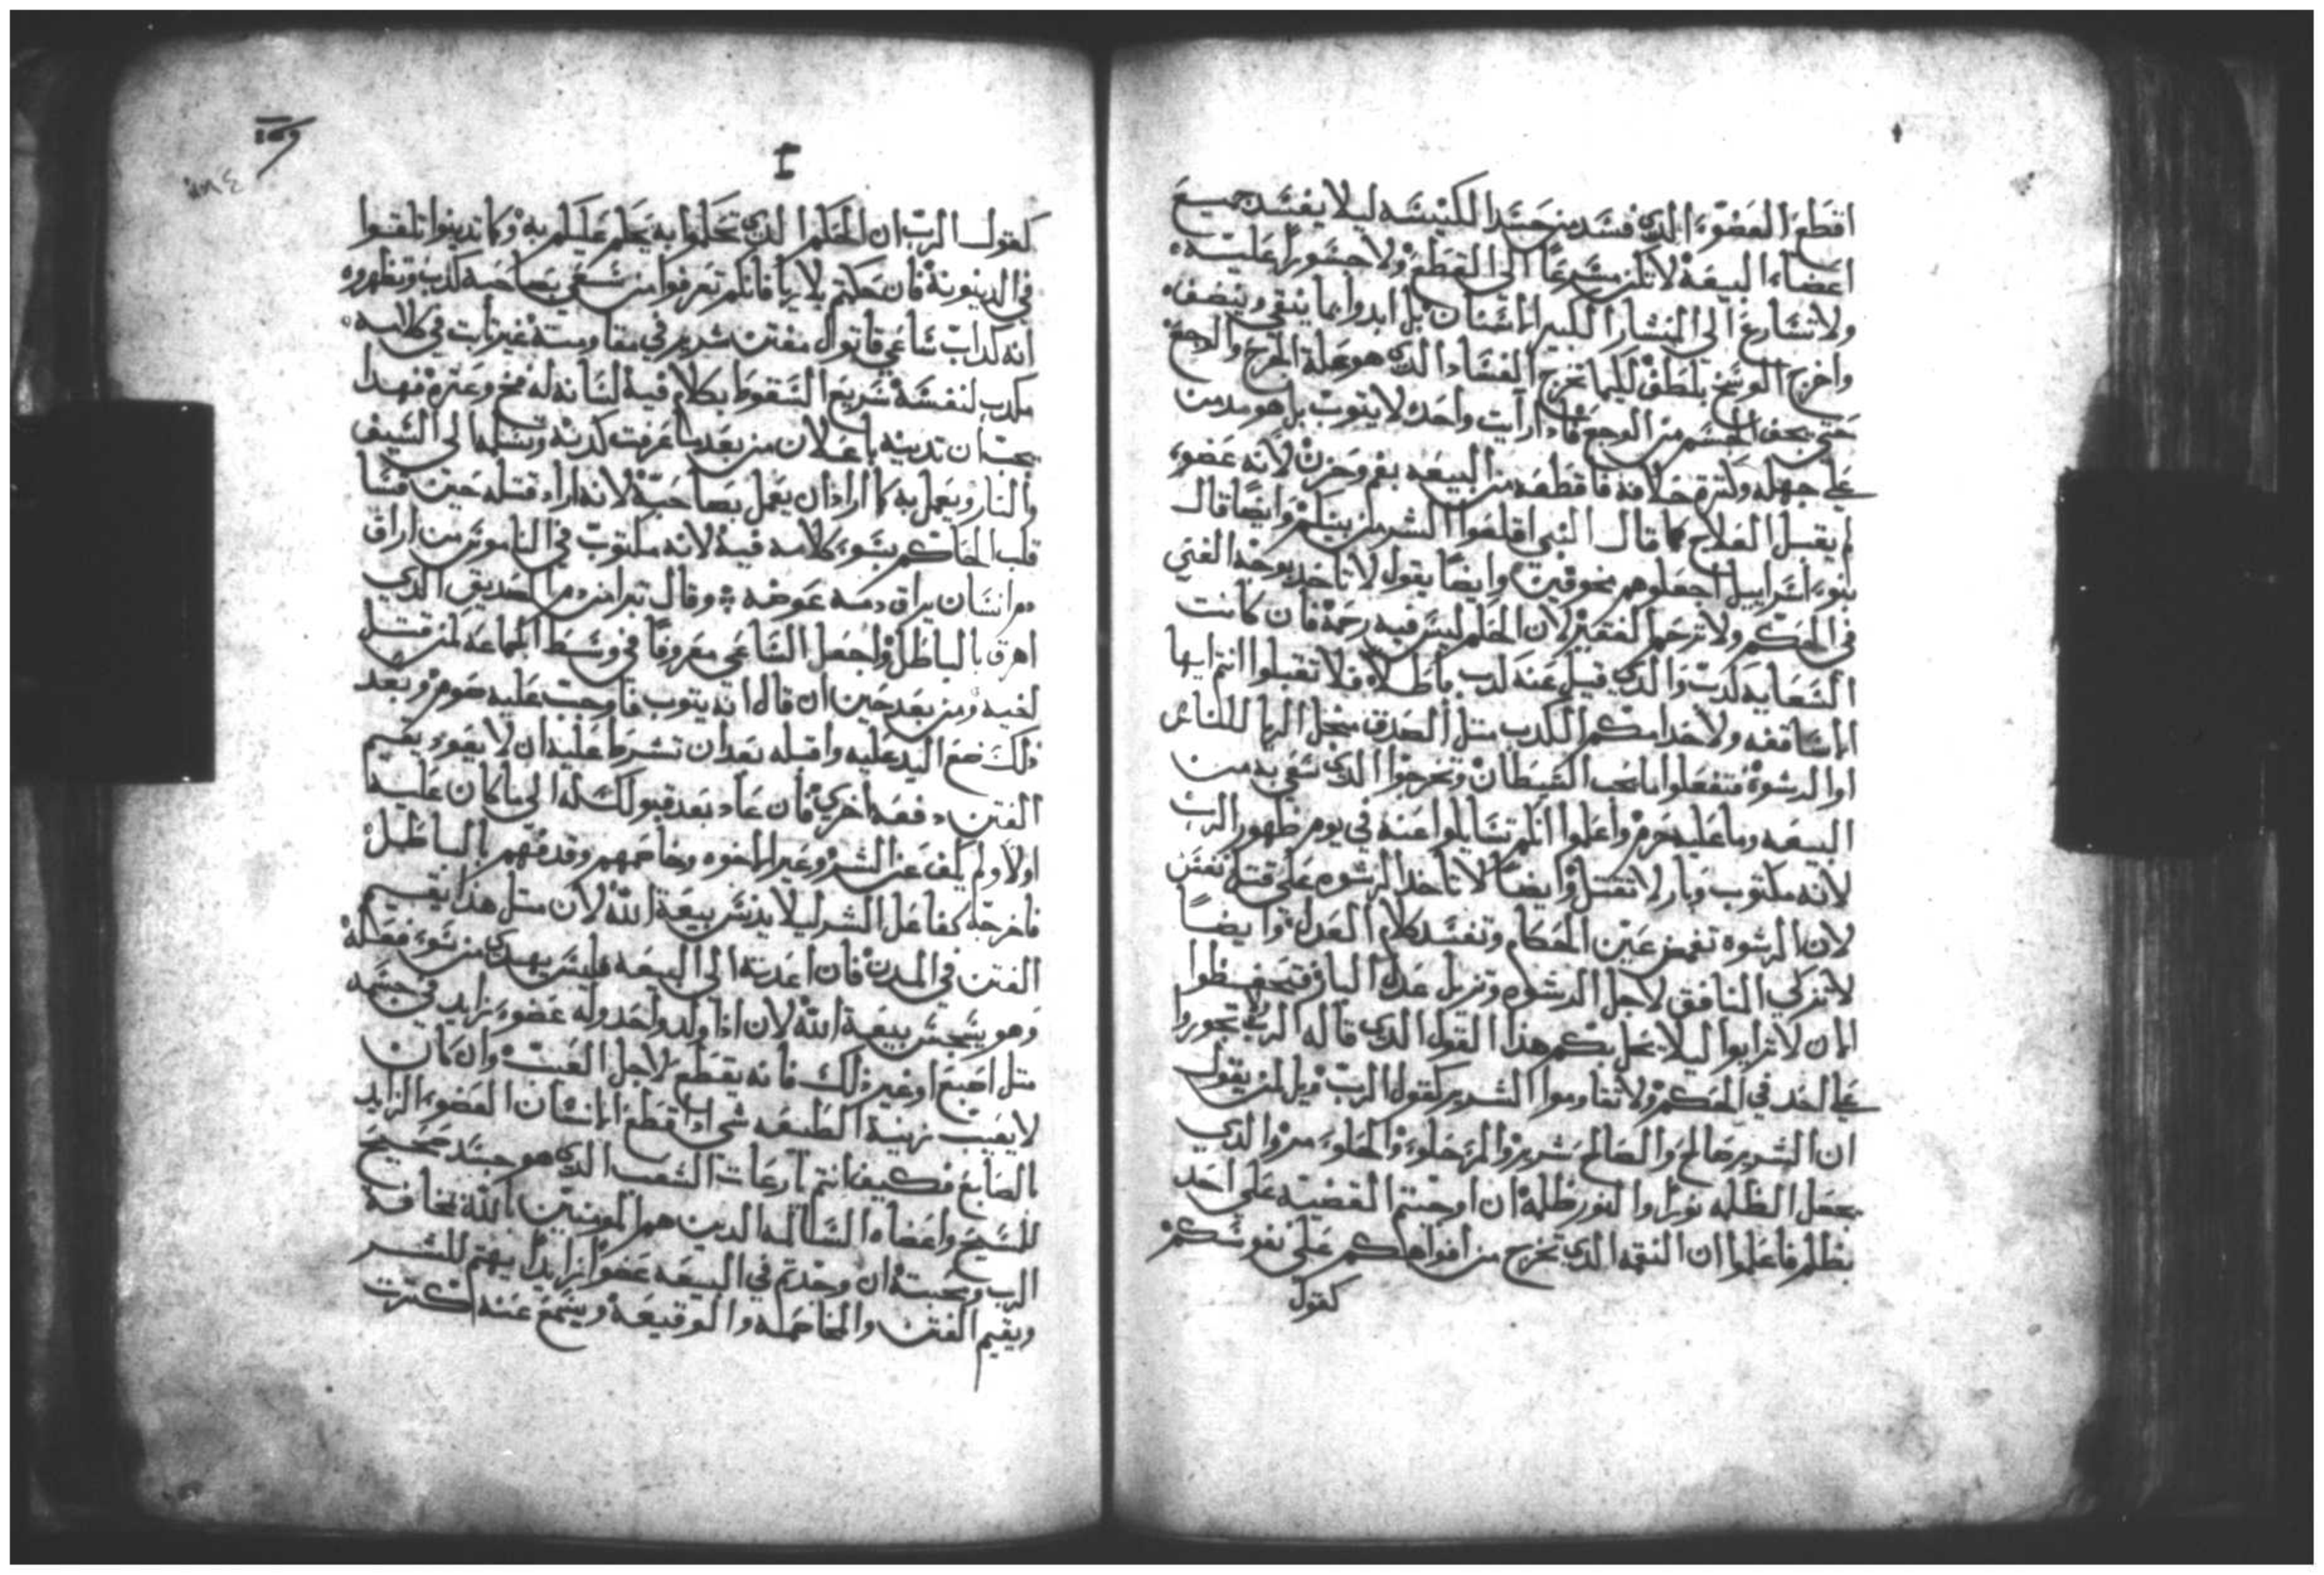 اقطع العضوء الدى فسد من جسد الكنيسه ليلا يفسد جميع
اعضاء البيعه لا تكن مسرعًا الى القطع ولا جسورًا عليه
ولا تسارع الى المنشار الكبير الاسنان بل ابدوا بما ينقي وينضف
واخرج الوسخ بلطف لكيما تخرج الفساد الدى هو علة الجرح والوجع
حتى يخف الجسم من الوجع فادا رايت واحد لا يتوب بل هو مدمن
على جهله ولترة خلافه فاقطعه من البيعه بغم وحزن لانه عضوء
لم يقبل العلاج كما قال النبي اقلعوا الشر من بينكم وايضًا قال
بنوء اسراييل اجعلوهم مخوفين وايضًا يقول لا تاخد بوجه الغني
في الحكم ولا ترحم الفقير لان الحكم ليس فيه رحمة فان كانت
السعايه كدب والدى قيل عنه كدب باطلا فلا تقبلوا انتم ايها
الاساقفه ولا احدا منكم الكدب متل الصدق من اجل الريا للناس
اوا الرشوة فتفعلوا ما يحب الشيطان وتخرجوا الدى سعي به من
البيعه وما عليه جرم واعلموا انكم تسايلوا عنه في يوم ظهور الرب
لانه مكتوب وبار لا تقتل وايضًا لا تاخد الرشوه على قتل نفس
لان الرشوه تغمض عين الحكام وتفسد كلام العدل وايضًا
لا تزكي المنافق لاجل الرشوه وتزيل عدل البار فتحفظوا
الان لا ترايوا ليلا يحل بكم هذا القول الدى قاله الرب تجوروا
على احد في الحكم ولا تقاوموا الشرير كقول الرب ويل لمن يقول
ان الشرير صالح والصالح شرير والمر حلوء والحلوء مر والدي
يجعل الظلمه نورا والنور ظلمه ان اوجبتم القضيه على احد
بظلم فاعلموا ان النقمه الدى تخرج من افواهكم على نفوسكم
كقول
كقول الرب ان الحكم الدى تحكموا به يحكم عليكم به وكما تدينوا تلقوا
في الدينونة فان حكمتم بلا ريا فانكم تعرفوا من سعي بصاحبه كدب وتظهروه
انه كداب ساعي قاتول مفتن شرير في مقاومته غير تابت في كلامه
مكدب لنفسه سريع السقوط بكلام فيه لسانه له فخ وعترة فهدا
يجب ان تدينه باعلان من بعد ما عرفت كدبه وتسلمه الى السيف
والنار ويعمل به كما اراد ان يعمل بصاحبه لانه اراد قتله حين قسا
قلب الحاكم بسوء كلامه فيه لانه مكتوب في الناموس من اراق
دم انسان يراق دمه عوضه وقال تبرا من دم الصديق الدي
اهرق بالباطل واجعل الساعي معروفًا في وسط الجماعه لمن قتل
اخيه ومن بعد حين ان قال انه يتوب فاوجب عليه صوم وبعد
ذلك ضع اليد عليه واقبله بعد ان تشرط عليه ان لا يعود يقيم
الفتن دفعه اخري فان عاد بعد قبولك له الى ما كان عليه
اولاً ولم يكف عن الشر وعير الاخوه وخاصمهم وقدفهم بالباطل
فاخرجه كفاعل الشر ليلا يدنس بيعة الله لان متل هذا يقيم
الفتن في المدن فان اعدته الى البيعه فليس يهدى من سوء فعله
وهو ينجس بيعة الله لان اذا ولد واحد وله عضوء زايد في جسمه
متل اصبع او غير ذلك فانه يقطع لاجل العيب وان كان
لا يعيب زينة الطبيعه شي ادا قطع الانسان العضوء الزايد
بالصانع فكيف انتم يا رعات الشعب الدى هو جسد صحيح
للمسيح واعضاء السالمه الدين هم المومنين بالله مخافة
الرب ومحبته ان وجدتم في البيعه عضوا زايدًا يهتم للشر
ويقيم الفتن والمخاصمه والوقيعه ويسمع عنه اكترت